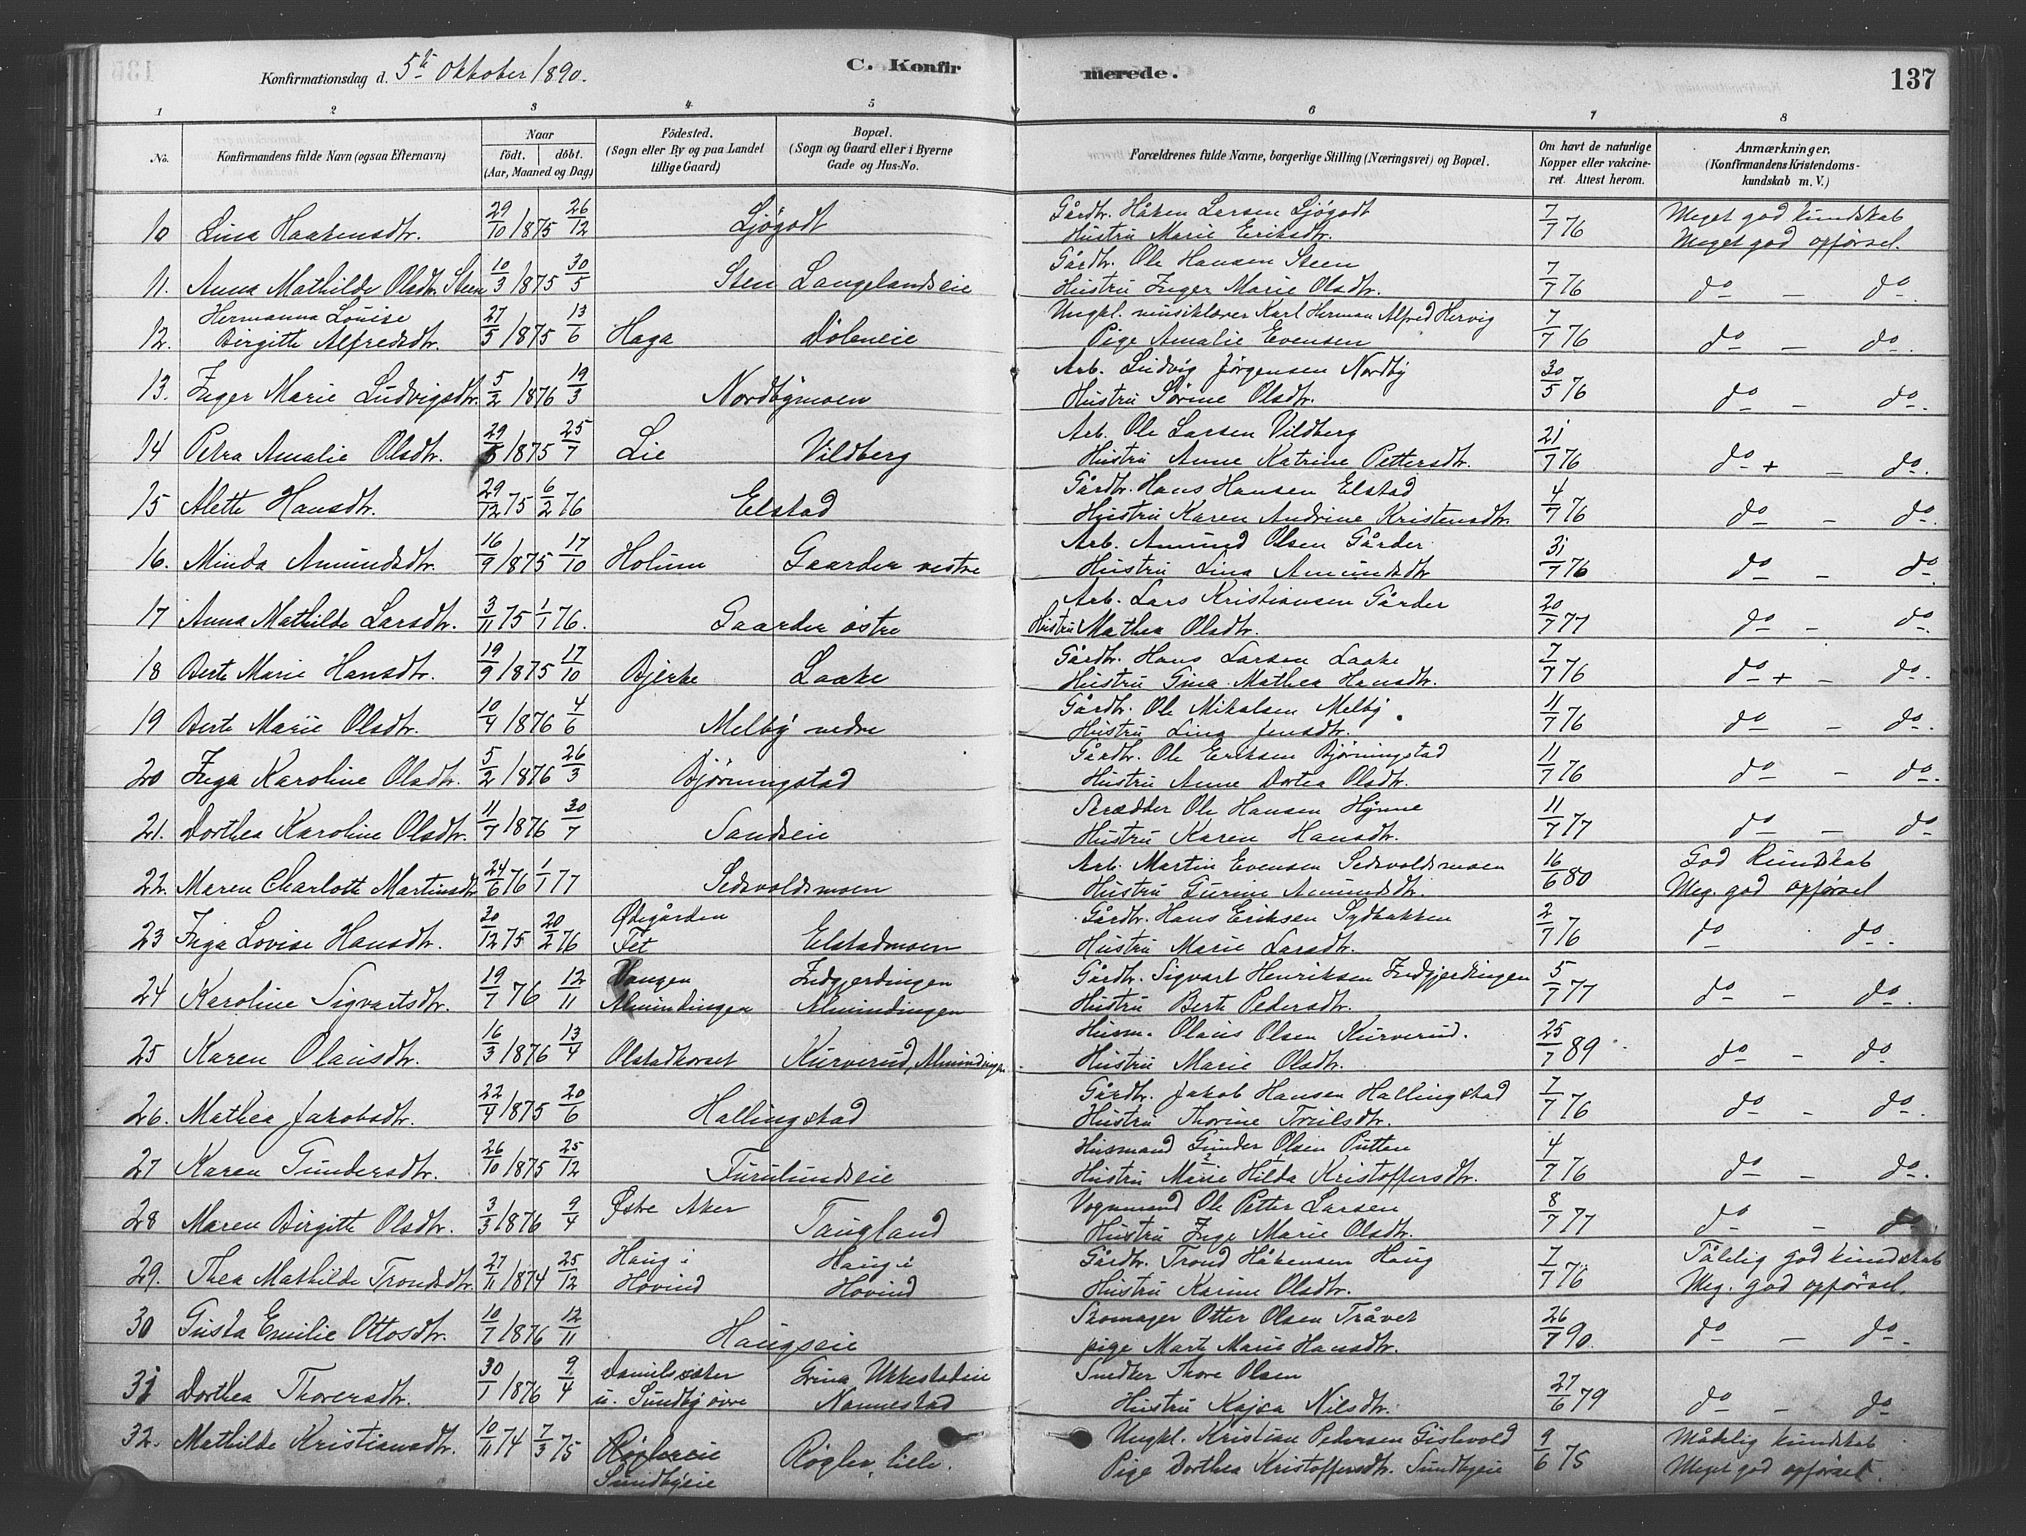 Konfirmationsdag d. 5te Oktober 1890. C. Konfirmerede. 137
1 2 3 4 5 6 7 8
No. Konfirmandens fulde Navn (ogsaa Efternavn) Naar født. døbt. (Aar, Maaned og Dag) Fødested. (Sogn eller By og paa Landet tillige Gaard) Bopæl. (Sogn og Gaard eller i Byerne Gade og Hus-No. Forældrenes fulde Navne, borgerlige Stilling (Næringsvei) og Bopæl. Om havt de naturlige Kopper eller vakcineret. Attest herom. Anmærkninger, (Konfirmandens Kristendomskundskab m. V.)
10 Lina Haakensdtr. 29/10 1875 26/12 Ljøgodt Gårdbr. Håken Larsen Ljøgodt Hustru Marie Eriksdtr. 7/7 76 Meget god kundskab Meget god opførsel.
11. Anna Mathilde Olsdtr. Steen 10/3 1875 30/5 Sten Langelandseie Gårdbr. Ole Hansen Steen Hustru Inger Marie Olsdtr. 7/7 76 do — do.
12. Hermanna Louise Birgitte Alfredsdtr. 27/5 1875 13/6 Haga Döleneie Ungkl. musiklærer Karl Herman Alfred Hervig Pige Amalie Evensen 7/7 76 do — do.
13. Inger Marie Ludvigsdtr. 5/2 1876 19/3 Nordbymoen Arb. Ludvig Jørgensen Nordby Hustru Sørine Olsdtr. 30/5 76 do — do.
14 Petra Amalie Olsdtr. 29/5 1875 25/7 Lie Vildberg Arb. Ole Larsen Vildberg Hustru Anne Katrine Pettersdtr. 21/7 76 do + — do.
15 Alette Hansdtr. 29/12 75 6/2 76 Elstad Gårdbr. Hans Hansen Elstad Hustru Karen Andrine Kristensdtr. 4/7 76 do — do.
16. Minda Amundsdtr. 16/9 1875 17/10 Holum Gaarder vestre Arb. Amund Olsen Gårder Hustru Lina Amundsdtr 31/7 76 do — do.
17 Anna Mathilde Larsdtr. 3/11 75 1/1 76. Gaarder østre Arb. Lars Kristiansen Gårder Hustru Mathea Olsdtr. 20/7 77 do — do.
18 Berte Marie Hansdtr. 19/9 1875 17/10 Bjerke Laake Gårdbr. Hans Larsen Laake Hustru Gina Mathea Hansdtr. 7/7 76 do + — do.
19 Berte Marie Olsdtr. 10/4 1876 4/6 Melby nedre Gårdbr. Ole Mikalsen Melby Hustru Lina Jensdtr. 11/7 76 do — do.
20 Inga Karoline Olsdtr. 5/2 1876 26/3 Bjørningstad Gårdbr. Ole Eriksen Bjørningstad Hustru Anne Dortea Olsdtr. 11/7 76 do — do.
21. Dorthea Karoline Olsdtr. 11/7 1876 30/7 Sandseie Skrædder Ole Hansen Hynne Hustru Karen Hansdtr. 11/7 77 do — do
22. Maren Charlotte Martinsdtr 24/6 76 1/1 77 Sedvoldsmoen Arb. Martin Evensen Sedvoldsmoen Hustru Gurine Amundsdtr. 16/6 80 God kundskab Meg. god opførsel
23 Inga Lovise Hansdtr. 30/12 75 20/2 76 Ødegården Fet Elstadmoen Gårdbr. Hans Eriksen Sydbakken Hustru Marie Larsdtr. 2/7 76 do do.
24 Karoline Sigvartsdtr. 19/7 76 12/11 Vangen Almindingen Indgjerdingen Almindingen Gårdbr. Sigvart Henriksen Indgjerdingen Hustru Berte Pedersdtr. 5/7 77 do — do.
25 Karen Olausdtr. 16/3 1876 13/4 Olstadkorset Kurverud, Almindingen Husm. Olaus Olsen Kurverud. Hustru Marie Olsdtr. 25/7 89 do — do
26. Mathea Jakobsdtr. 22/4 1875 20/6 Hallingstad Gårdbr. Jakob Hansen Hallingstad Hustru Thorine Truelsdtr. 7/7 76 do — do.
27 Karen Gundersdtr. 26/10 1875 25/12 Furulundseie Husmand Gunder Olsen Putten Hustru Marie Hilda Kristoffersdtr. 4/7 76 do — do.
28 Maren Birgitte Olsdtr. 3/3 1876 9/4 Østre Aker Taugland Vognmand Ole Petter Larsen Hustru Inge Marie Olsdtr. 8/7 77 do — do
29. Thea Mathilde Trondsdtr. 27/11 1874 25/12 Haug i Hovind Haug i Hovind Gårdbr. Trond Håkensen Haug Hustru Karine Olsdtr. 7/7 76 Tålelig god kundskab Meg. god opførsel.
30 Gusta Emilie Ottosdtr. 10/7 1876 12/11 Haugseie Skomager Otter Olsen Tråvet pige Marte Marie Hansdtr. 26/7 90. do — do.
31 Dorthea Thoresdtr. 30/1 1876 9/4 Danielsæter u. Sundby øvre Grina Ukkestadeie Nannestad Snedker Thore Olsen Hustru Kajsa Nilsdtr. 27/6 79 do — do
32. Mathilde Kristiansdtr. 10/11 74 7/3 75 Røglereie Sundbyeie Røgler lille. Ungkl. Kristian Pedersen Gislevold Pige Dorthea Kristoffersdtr. Sundbyeie 9/6 75 Mådelig kundskab Meget god opførsel.